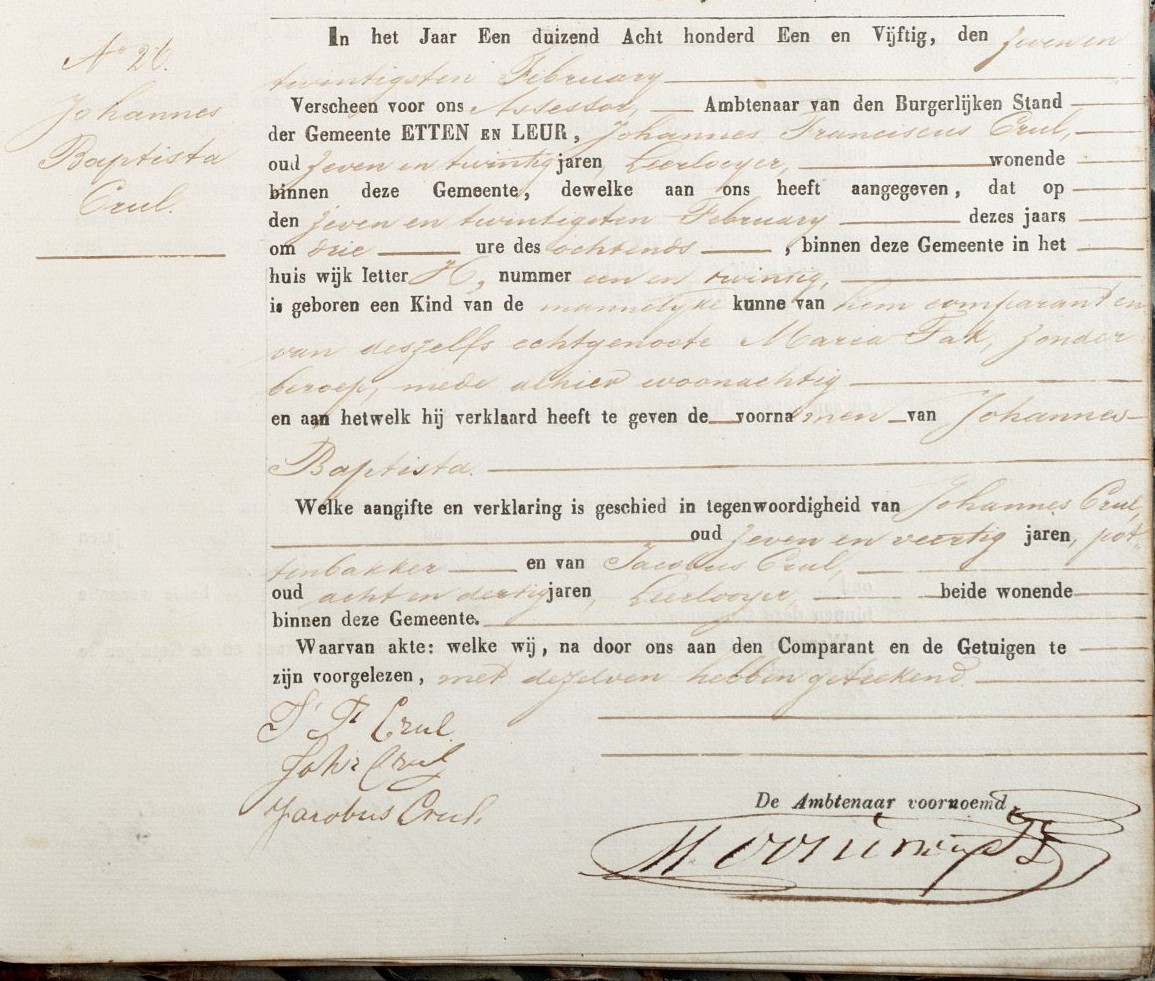 No 26.
Johannes
Baptista
Crul.
In het Jaar Een duizend Acht honderd Een en Vijftig, den zeven en
twintigsten February
Verscheen voor ons Assessor, Ambtenaar van den Burgerlijken Stand
der Gemeente ETTEN EN LEUR, Johannes Franciscus Crul,
oud zeven en twintig jaren, Leerlooyer, wonende
binnen deze Gemeente, dewelke aan ons heeft aangegeven, dat op
den zeven en twintigsten February dezes jaars
om drie ure des ochtends, binnen deze Gemeente in het
huis wijk letter H, nummer een en twintig,
is geboren een Kind van de mannelyke kunne van hem comparant en
van deszelfs echtgenoote Maria Tak, zonder
beroep, mede alhier woonachtig
en aan hetwelk hij verklaard heeft te geven de voornamen van Johannes
Baptista.
Welke aangifte en verklaring is geschied in tegenwoordigheid van Johannes Crul,
oud zeven en veertig jaren, pot
tenbakker en van Jacobus Crul,
oud acht en dertig jaren, Leerlooyer, beide wonende
binnen deze Gemeente.
Waarvan akte: welke wij, na door ons aan den Comparant en de Getuigen te
zijn voorgelezen, met dezelven hebben geteekend
Crul
Joh Crul
Jacobus Crul.
De Ambtenaar voornoemd,